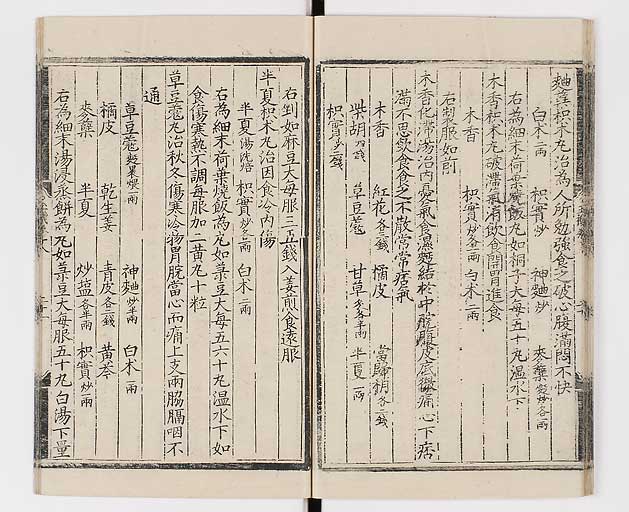 麯蘖枳朮丸治為人所勉強食之破心腹滿悶不快
白朮二兩 枳實炒 神麯炒 麥蘖炒各一兩
右為細末荷葉燒飯丸如桐子大每五十丸溫水下
木香枳朮丸破滯氣消飲食開胃進食
木香 枳實炒各一兩 白朮二兩
右製服如前
木香化滯湯治內憂氣食濕麵結於中脘腹皮底微痛心下痞
滿不思飲食食之不散常常痞氣
木香 紅花各三錢 橘皮 當歸梢各二錢
柴胡四錢 草豆蔻 甘草各半兩 半夏一兩
枳實炒二錢
右剉如麻豆大每服三五錢入姜煎食遠服
半夏枳朮丸治因食冷內傷
半夏湯洗焙 枳實炒各一兩 白朮二兩
右為細末荷葉燒飯為丸如菉豆大每五六十丸溫水下如
食傷寒熱不調每服加二黃丸十粒
草豆蔻丸治秋冬傷寒冷物胃脘當心而痛上支兩脇膈咽不
通
草豆蔻麵裹煨一兩 神麯炒半兩 白朮一兩
橘皮 乾生姜 青皮各二錢 黃芩
麥蘖 半夏 炒塩各半兩 枳實炒一兩
右為細末湯浸烝餅為丸如菉豆大每服五十丸白湯下量